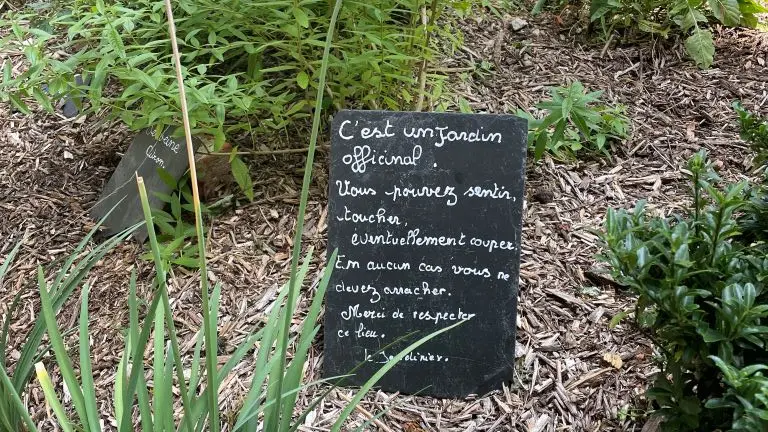 C'est un Jardin
officinal.
Vous pouvez sentir,
toucher,
éventuellement couper.
Em aucun cas vous ne
devez arracher.
Merci de respecter
ce lieu.
le Jardinier.
citron.